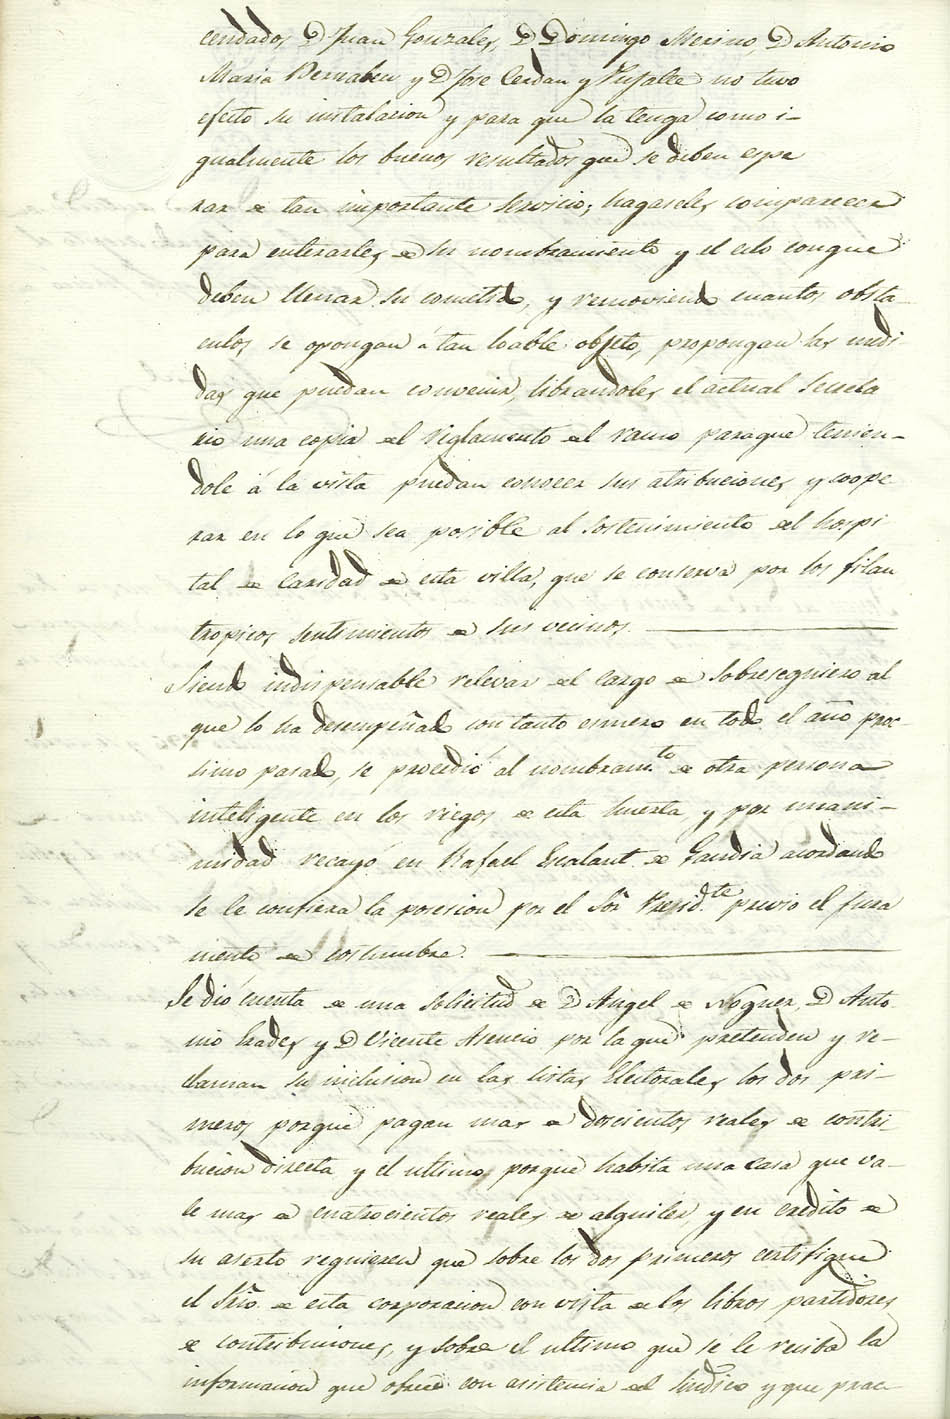 cendados, D Juan Gonzales, D Domingo Merino, D Antonio
Maria Bernabeu y D Jose Cerdan y no tuvo
efecto su instalacion y para que la tenga como i-
gualmente los buenos resultados que se deben espe
rar de tan importante servicio; hagaseles comparecer
para enterarles de su nombramiento y el celo conque
deben llenar su cometido, y removiendo cuantos obsta
culos se opongan á tan loable objeto, propongan las medi
das que puedan convenir, librandoles el actual Secreta
rio una copia del reglamento del ramo paraque tenien-
dole á la vista puedan conocer sus atribuciones y coope
rar en lo que sea posible al sostenimiento del hospi
tal de Caridad de esta villa, que se conserva por los filan
tropicos sentimientos de sus vecinos.
Siendo indispensable relevar del cargo de Sobresequiero al
que lo ha desempeñado con tanto esmero en todo el año proc-
simo pasado, se procedió al nombram.to de otra persona
inteligente en los riegos de esta huerta y por unani-
midad recayó en Rafael Escalant de Gandia acordando
se le confiera la posesion por el Sor Presid.te previo el jura
mento de costumbre.
Se dió cuenta de una solicitud de D Angel de Noguera, D Anto
nio y D Vicente Asencio por la que pretenden y re-
claman su inclusion en las listas Electorales, los dos pri-
meros porque pagan mas de doscientos reales de contri
bucion directa y el ultimo porque habita una casa que va-
le mas de cuatrocientos reales de alquiler y en credito de
su aserto requieren que sobre los dos primeros certifique
el Srio. de esta corporacion con vista de los libros partidores
de contribuciones, y sobre el ultimo que se le reciba la
informacion que ofrece con asistencia del Sindico y que prac-